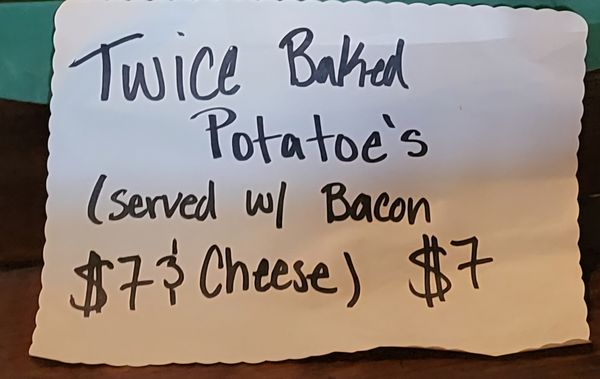 Twice Baked
Potatoe's
(served w/ Bacon
$7 & Cheese) $7